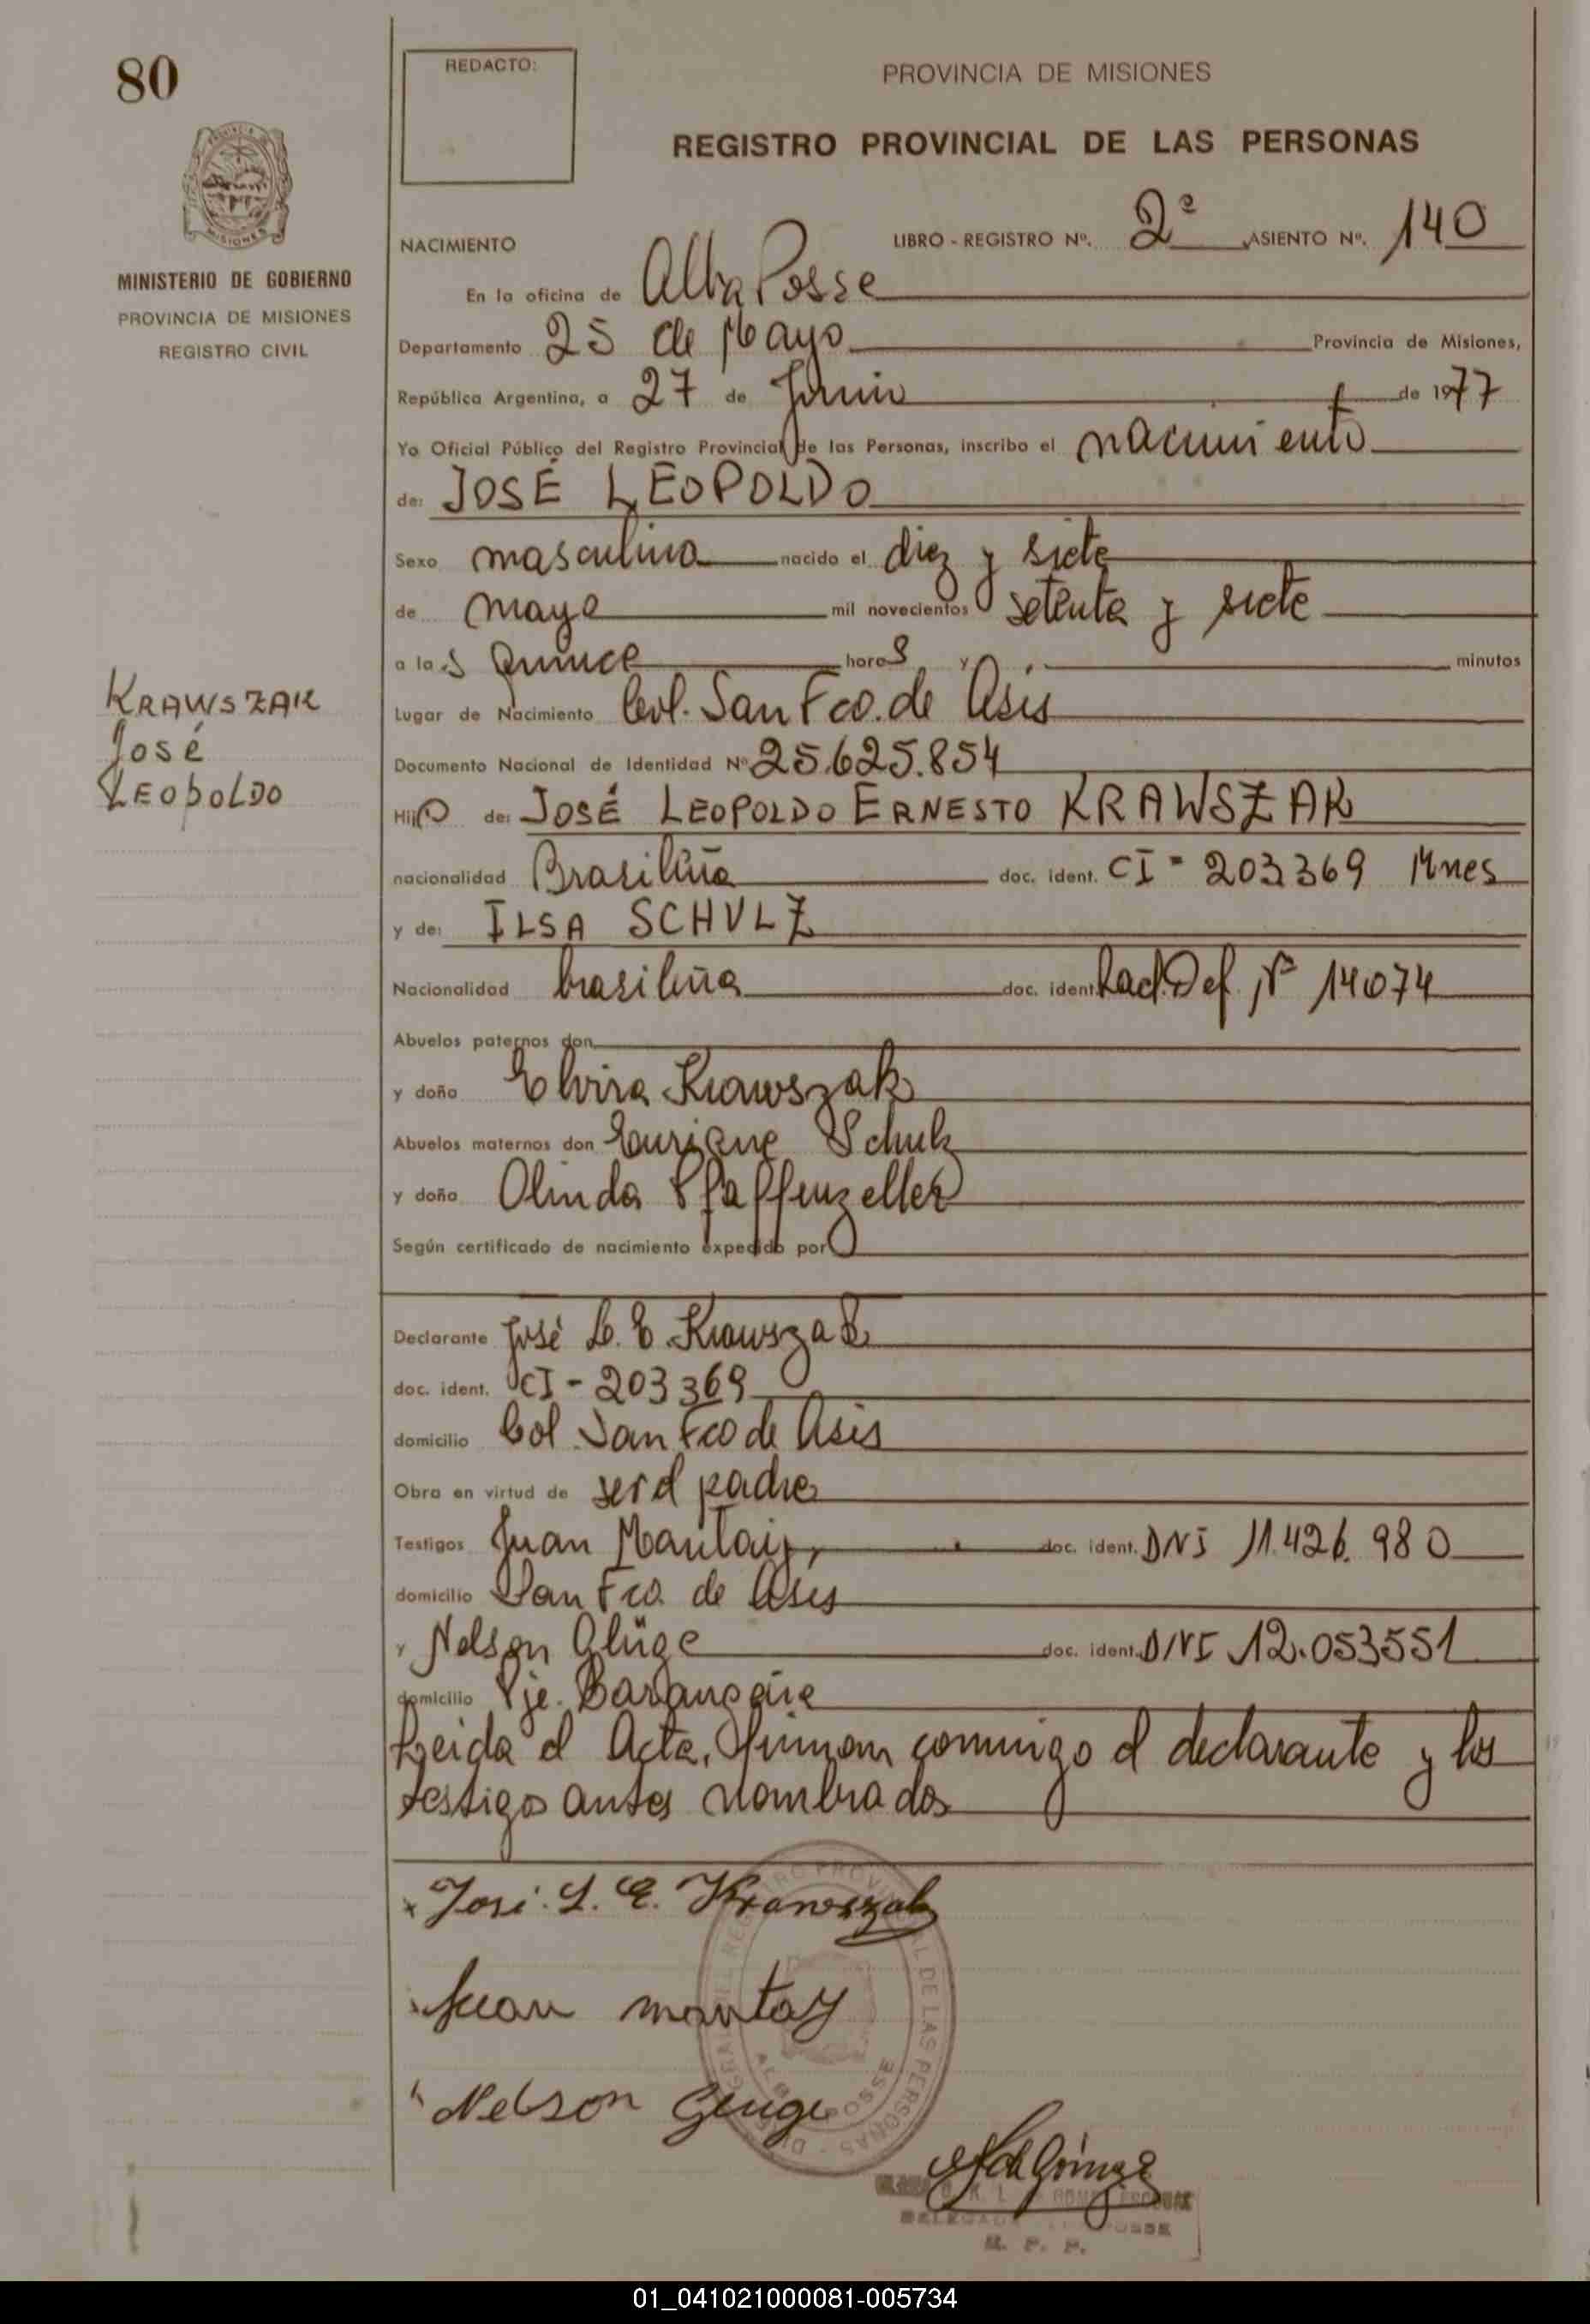 80
REDACTO:
PROVINCIA DE MISIONES
REGISTRO PROVINCIAL DE LAS PERSONAS
MINISTERIO DE GOBIERNO
PROVINCIA DE MISIONES
REGISTRO CIVIL
NACIMIENTO LIBRO - REGISTRO Nº. 2º ASIENTO Nº. 140
En la oficina de Alba Posse
Departamento 25 de Mayo Provincia de Misiones,
República Argentina, a 27 de Junio de 1977
Yo Oficial Público del Registro Provincial de las Personas, inscribo el nacimiento
de: JOSÉ LEOPOLDO
Sexo masculino nacido el diez y siete
de mayo mil novecientos setenta y siete
a las quince horas y minutos
KRAWSZAK
José
LEOpOLDO
Lugar de Nacimiento Col. San Fco. de Asis
Documento Nacional de Identidad Nº 25.625.854
Hijo de: JOSÉ LEOPOLDO ERNESTO KRAWSZAK
nacionalidad Brasileña doc. ident. CI - 203369 Mnes
y de: ILSA SCHULZ
Nacionalidad brasileña doc. ident. Rad. Def. Nº 14074
Abuelos paternos don
y doña Elvira Krawszak
Abuelos maternos don Enrique Schulz
y doña Olinda Pfaffenzeller
Según certificado de nacimiento expedido por
Declarante José L. E. Krawszak
doc. ident. CI - 203369
domicilio Col. San Fco de Asis
Obra en virtud de ser el padre
Testigos Juan Mantay, doc. ident. DNI 11.426.980
domicilio San Fco. de Asis
y Nelson Glüge doc. ident. DNI 12.053551
domicilio Pje. Barangaire
Leida el Acta, firman conmigo el declarante y los
testigos antes nombrados
José. L. E. Krawszak
Juan mantay
Nelson Gluge
DE LAS PERSONAS
ALBA POSSE
R. P. P.
01_041021000081-005734